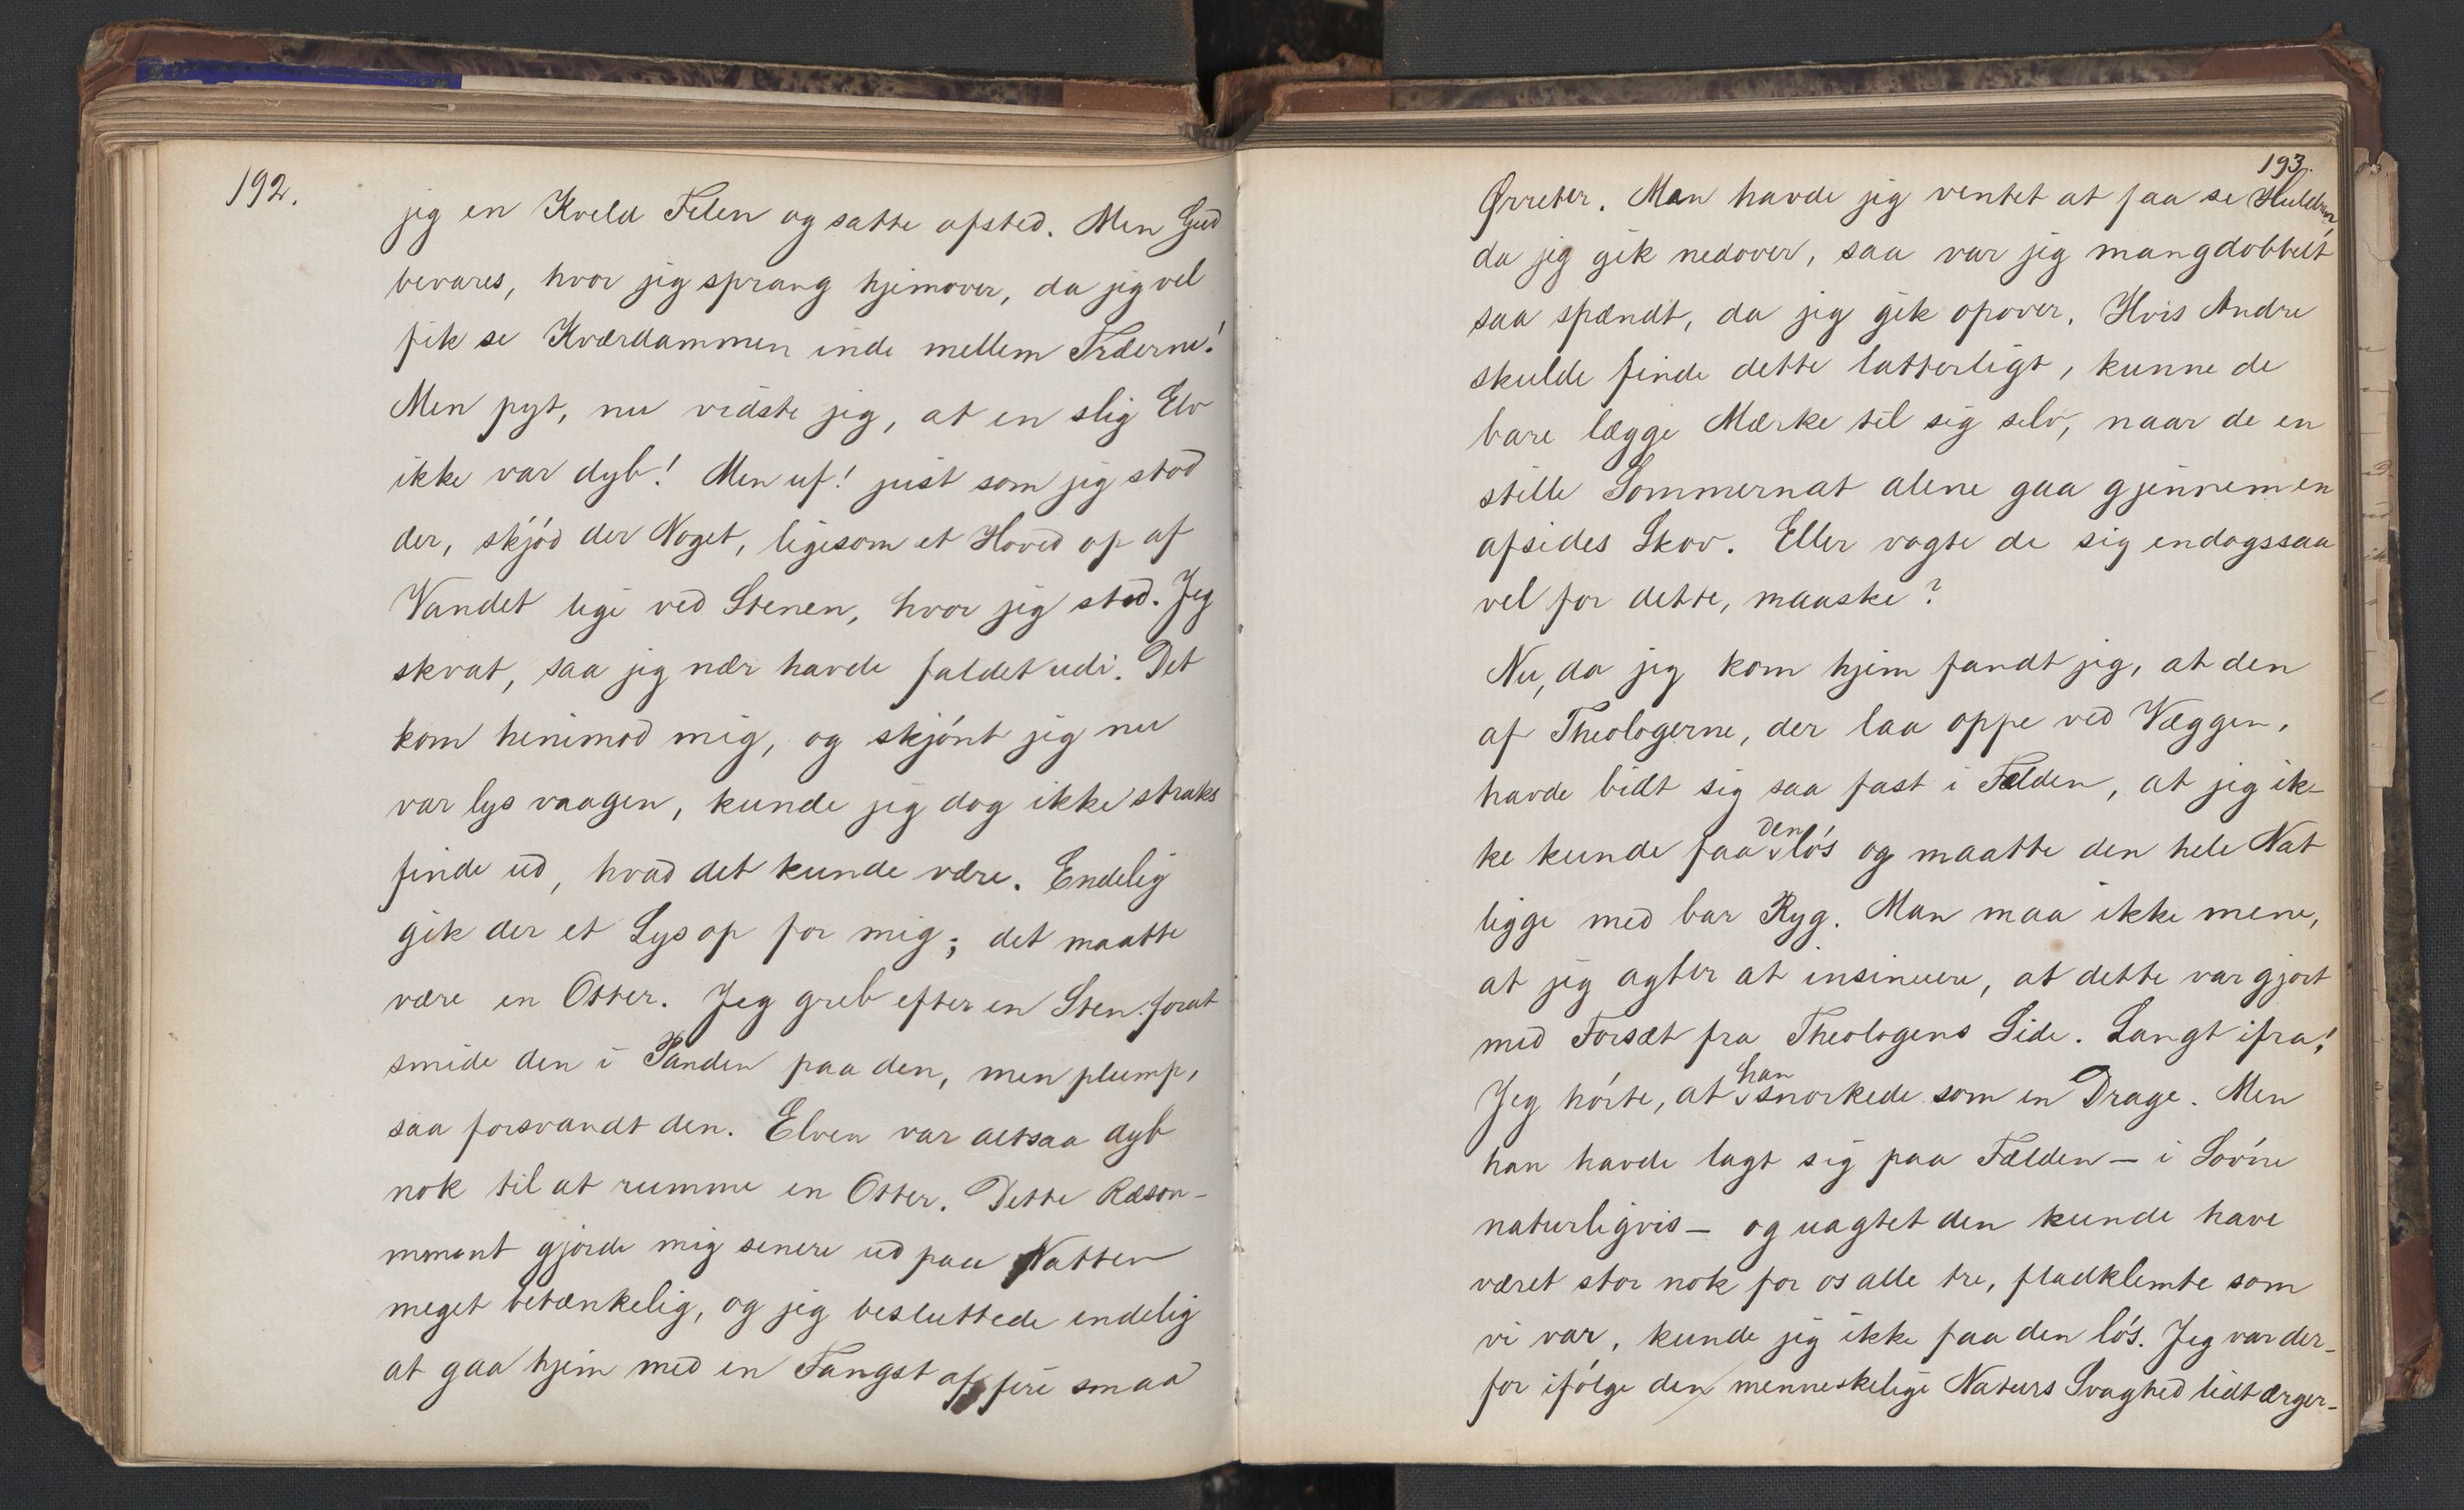 192.
jeg en Kveld Felen og satte afsted. Men Gud
bevares, hvor jeg sprang hjemover, da jeg vel
fik se Kværdammen inde mellem Træerne!
Men pyt, nu vidste jeg, at en slig Elv
ikke var dyb! Men uf! just som jeg stod
der, skjód der Noget, ligesom et Hoved op af
Vandet lige ved Stenen, hvor jeg stod. Jeg
skvat, saa jeg nær havde faldet udi. Det
kom henimod mig, og skjónt jeg nu
var lys vaagen, kunde jeg dog ikke straks
finde ud, hvad det kunde være. Endelig
gik der et Lys op for mig; det maatte
være en Otter. Jeg greb efter en Sten forat
smide den i Panden paa den, men plump,
saa forsvandt den. Elven var altsaa dyb
nok til at rumme en Otter. Dette Ræson-
nement gjorde mig senere ud paa Natten
meget betænkelig, og jeg besluttede endelig
at gaa hjem med en Fangst af fire smaa
193.
Ørreter. Men havde jeg ventet at faa se Huldren,
da jeg gik nedover, saa var jeg mangdobbelt
saa spændt, da jeg gik opover. Hvis Andre
skulde finde dette latterligt, kunne de
bare lægge Mærke til sig selv, naar de en
stille Sommernat alene gaa gjennem en
afsides Skov. Eller vogte de sig endogsaa
vel for dette, maaske?
Nu, da jeg kom hjem fandt jeg, at den
af Theologerne, der laa oppe ved Væggen,
havde bidt sig saa fast i Fælden, at jeg ik-
ke kunde faa den lós og maatte den hele Nat
ligge med bar Ryg. Man maa ikke mene,
at jeg agter at insinuere, at dette var gjort
med Forsæt fra Theologens Side. Langt ifra!
Jeg hórte, at han snorkede som en Drage. Men
han havde lagt sig paa Fælden – i Sóvne
naturligvis – og uagtet den kunde have
været stor nok for os alle tre, fladklemte som
vi var, kunde jeg ikke faa den lós. Jeg var der-
for ifólge den menneskelige Naturs Svaghed lidt ærger-